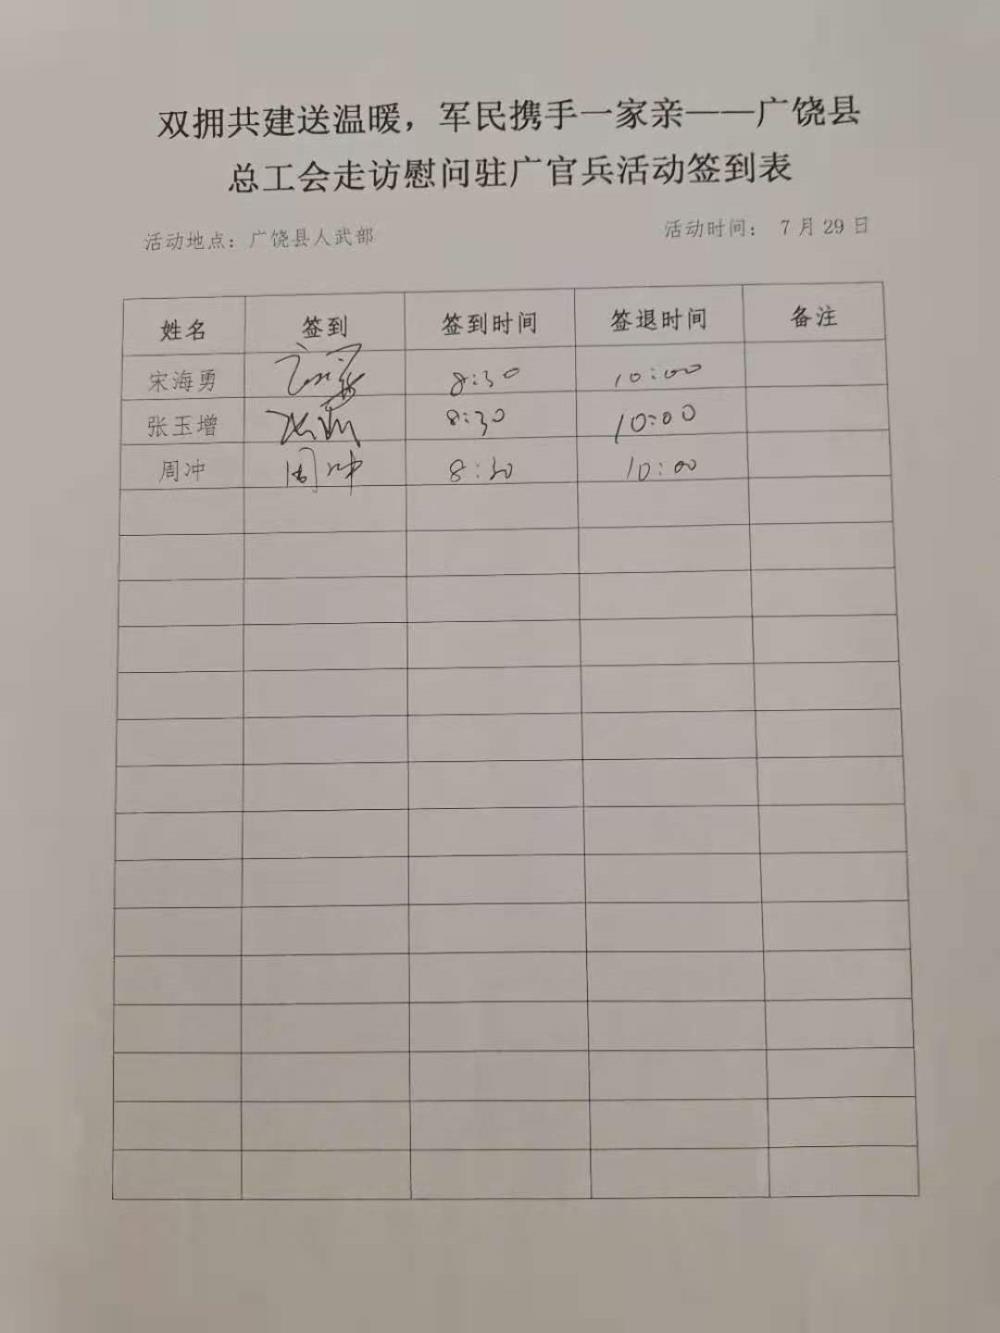 双拥共建送温暖，军民携手一家亲——广饶县
总工会走访慰问驻广官兵活动签到表
活动地点：广饶县人武部 活动时间： 7 月 29 日
姓名 签到 签到时间 签退时间 备注
宋海勇 8:30 10:00
张玉增 8:30 10:00
周冲 周冲 8:30 10:00